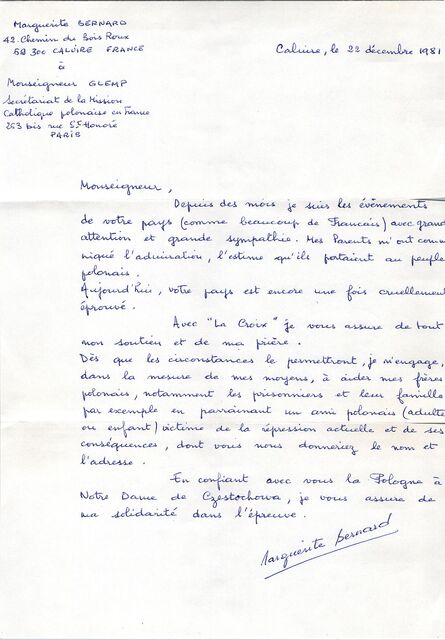 Marguerite BERNARD
42. Chemin du Bois Roux
69 300 CALUIRE FRANCE
Caluire, le 22 décembre 1981
à
Monseigneur GLEMP
Secrétariat de la Mission
Catholique polonaise en France
263 bis rue St Honoré
PARIS
Monseigneur,
Depuis des mois je suis les évènements
de votre pays (comme beaucoup de Français) avec grand
attention et grande sympathie. Mes Parents m'ont commu
niqué l'admiration, l'estime qu'ils portaient au peuple
polonais.
Aujourd'hui, votre pays est encore une fois cruellement
éprouvé.
Avec "La Croix" je vous assure de tout
mon soutien et de ma prière.
Dès que les circonstances le permettront, je m'engage,
dans la mesure de mes moyens, à aider mes frères
polonais, notamment les prisonniers et leur famille
par exemple en parrainant un ami polonais (adulte
ou enfant) victime de la répression actuelle et de ses
conséquences, dont vous nous donneriez le nom et
l'adresse.
En confiant avec vous la Pologne à
Notre Dame de Czestochowa, je vous assure de
ma solidarité dans l'épreuve.
Marguerite Bernard